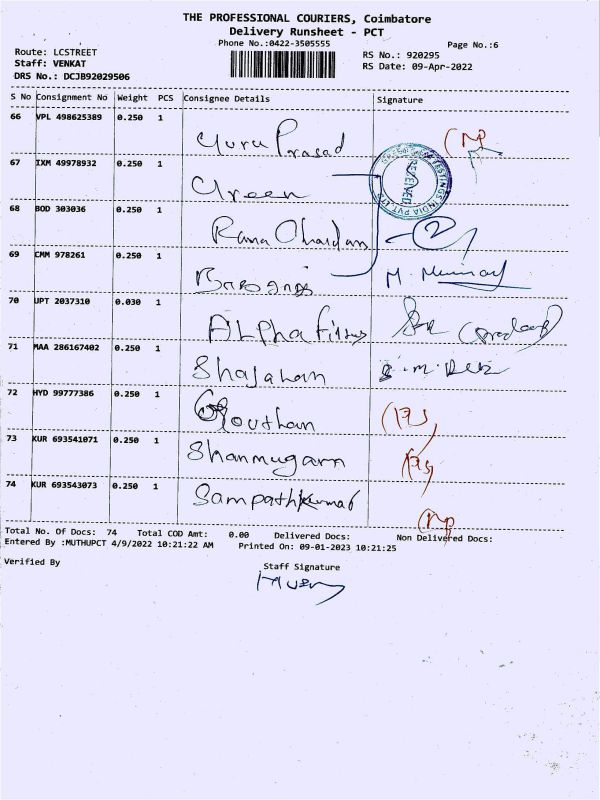 THE PROFESSIONAL COURIERS, Coimbatore
Delivery Runsheet - PCT
Phone No.:0422-3505555
Page No.:6
Route: LCSTREET
RS No.: 920295
Staff: VENKAT
RS Date: 09-Apr-2022
DRS No.: DCJB92029506
S No Consignment No Weight PCS Consignee Details Signature
66 VPL 498625389 0.250 1 Guru Prasad
67 IXM 49978932 0.250 1 Green
TESTINGS INDIA PVT. LTD
RECEIVED
68 BOD 303036 0.250 1 Rama
69 CMM 978261 0.250 1 M.
70 UPT 2037310 0.030 1 Alpha
71 MAA 286167402 0.250 1 Shajahan
72 HYD 99777386 0.250 1 Goutham
73 KUR 693541071 0.250 1 Shanmugam
74 KUR 693543073 0.250 1 Sampathkumar
Total No. Of Docs: 74 Total COD Amt: 0.00 Delivered Docs: Non Delivered Docs:
Entered By :MUTHUPCT 4/9/2022 10:21:22 AM Printed On: 09-01-2023 10:21:25
Verified By
Staff Signature